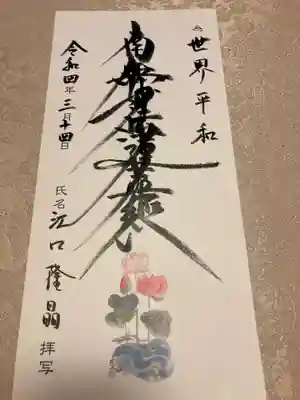 為
世界平和
南無妙法蓮華経
令和四年三月十四日
氏名 江口隆晶 拝写